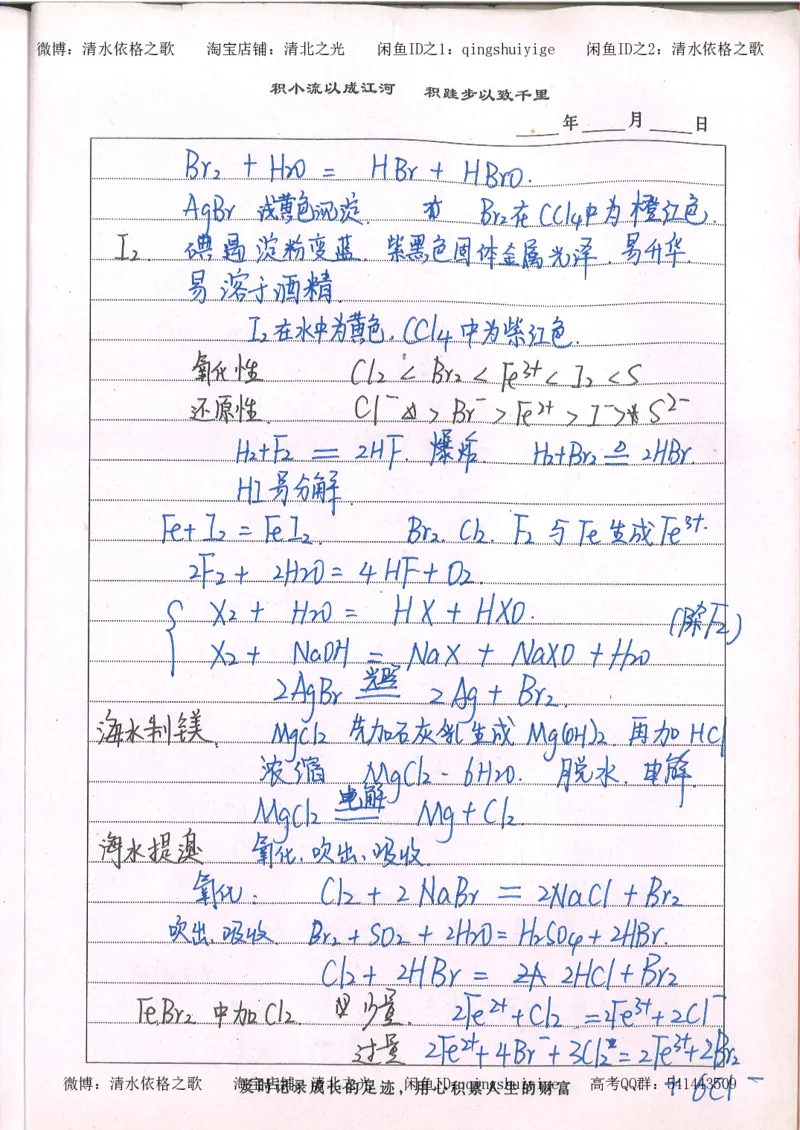 微博：清水依格之歌 淘宝店铺：清北之光 闲鱼ID之1：qingshuiyige 闲鱼ID之2：清水依格之歌
积小流以成江河 积跬步以致千里
年 月 日
Br₂ + H₂O = HBr + HBrO.
AgBr 浅黄色沉淀. Br₂在CCl₄中为橙红色.
I₂. 碘遇淀粉变蓝. 紫黑色固体金属光泽. 易升华.
易溶于酒精.
I₂在水中为黄色, CCl₄中为紫红色.
氧化性 Cl₂ < Br₂ < Fe³⁺ < I₂ < S
还原性. Cl⁻ > Br⁻ > Fe²⁺ > I⁻ > S²⁻
H₂+F₂ = 2HF. 爆炸. H₂+Br₂ ≜ 2HBr.
HI易分解.
Fe+I₂ = FeI₂. Br₂. Cl₂. F₂ 与Fe生成Fe³⁺.
2F₂ + 2H₂O = 4HF + O₂.
X₂ + H₂O = HX + HXO. (除F₂)
X₂ + NaOH = NaX + NaXO + H₂O
2AgBr 光照 2Ag + Br₂.
海水制镁. MgCl₂ 先加石灰乳生成Mg(OH)₂. 再加HCl
浓缩 MgCl₂-6H₂O. 脱水. 电解.
MgCl₂ 电解 Mg + Cl₂.
海水提溴 氧化.吹出.吸收.
氧化: Cl₂ + 2NaBr = 2NaCl + Br₂
吹出、吸收. Br₂ + SO₂ + 2H₂O = H₂SO₄ + 2HBr.
Cl₂ + 2HBr = 2HCl + Br₂
FeBr₂ 中加Cl₂. 少量. 2Fe²⁺ + Cl₂ = 2Fe³⁺ + 2Cl⁻
过量 2Fe²⁺ + 4Br⁻ + 3Cl₂ = 2Fe³⁺ + 2Br₂
+ 6Cl⁻
微博：清水依格之歌 淘宝店铺：清北之光 闲鱼ID：qingshuiyige 高考QQ群：541443509
及时记录成长的足迹，用心积累人生的财富